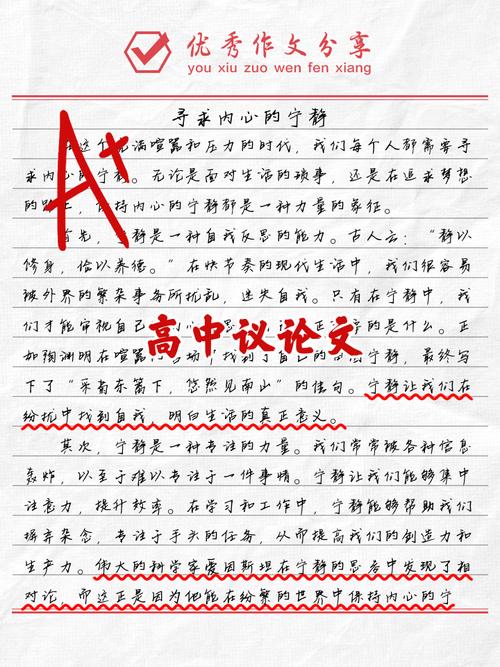 优秀作文分享
you xiu zuo wen fen xiang
寻求内心的宁静
A+
这个 满喧嚣和压力的时代，我们每个人都需要寻
求内心的宁 。无论是面对生活的琐事，还是在追求梦想
的路上， 持内心的宁静都是一种力量的象征。
首先，宁静是一种自我反思的能力。古人云：“静以
修身，俭以养德。”在快节奏的现代生活中，我们很容易
被外界的繁杂事务所扰乱，迷失自我。只有在宁静中，我
们才能审视自己 心 思 正 的是什么。正
高中议论文
如陶渊明在喧嚣 官场 找到了自己的 宁静，最终写
下了“采菊东篱下，悠然见南山”的佳句。宁静让我们在
纷扰中找到自我，明白生活的真正意义。
其次，宁静是一种专注的力量。我们常常被各种信息
轰炸，以至于难以专注于一件事情。宁静让我们能够集中
注意力，提升效率。在学习和工作中，宁静能够帮助我们
摒弃杂念，专注于手头的任务，从而提高我们的创造力和
生产力。伟大的科学家爱因斯坦在宁静的思考中发现了相
对论，而这正是因为他能在纷繁的世界中保持内心的宁